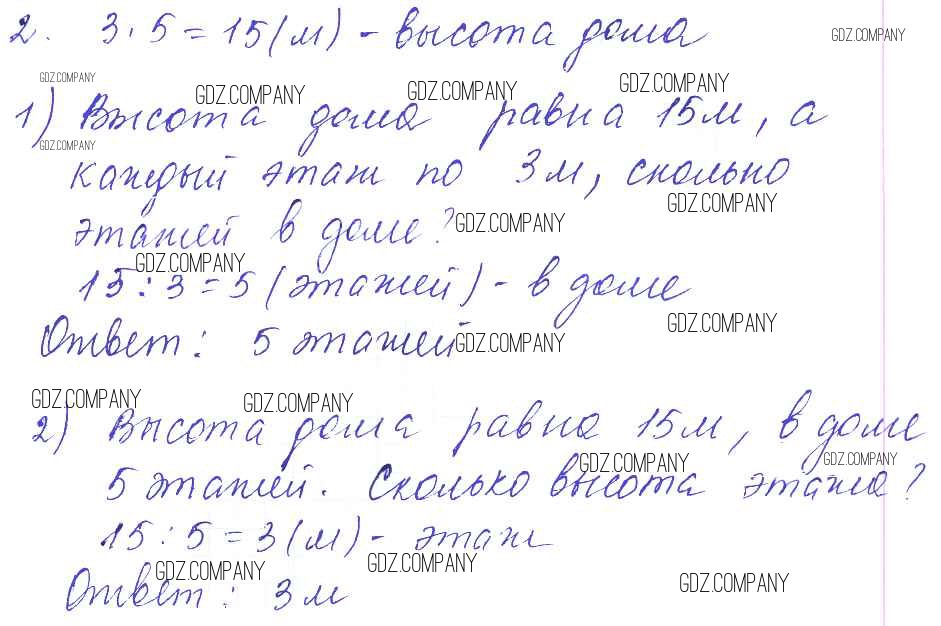 2. 3·5=15(м) - высота дома
GDZ.COMPANY
GDZ.COMPANY
GDZ.COMPANY
GDZ.COMPANY
GDZ.COMPANY
1) Высота дома равна 15м, а
GDZ.COMPANY
каждый этаж по 3м, сколько
GDZ.COMPANY
этажей в доме?
GDZ.COMPANY
GDZ.COMPANY
15:3=5(этажей) - в доме
GDZ.COMPANY
Ответ: 5 этажей
GDZ.COMPANY
GDZ.COMPANY
GDZ.COMPANY
2) Высота дома равна 15м, в доме
GDZ.COMPANY
GDZ.COMPANY
5 этажей. Сколько высота этажа?
15:5=3(м) - этаж
GDZ.COMPANY
GDZ.COMPANY
GDZ.COMPANY
Ответ: 3м